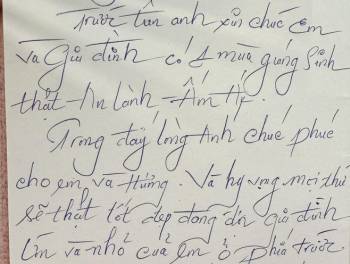 Trước tiên anh xin chúc Em
và Gia đình có 1 mùa giáng Sinh
thật - An Lành - Ấm
Trong đáy lòng Anh chúc phúc
cho em và Hưng. Và hy vọng mọi thứ
sẽ thật tốt đẹp đang đến gia đình
lớn và nhỏ của Em ở phía trước.